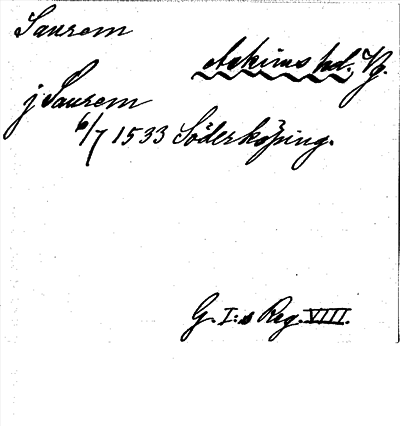 Saurom
Askims hd., Vg.
j Saurom
6/7 1533 Söderköping.
G. I:s Reg. VIII.